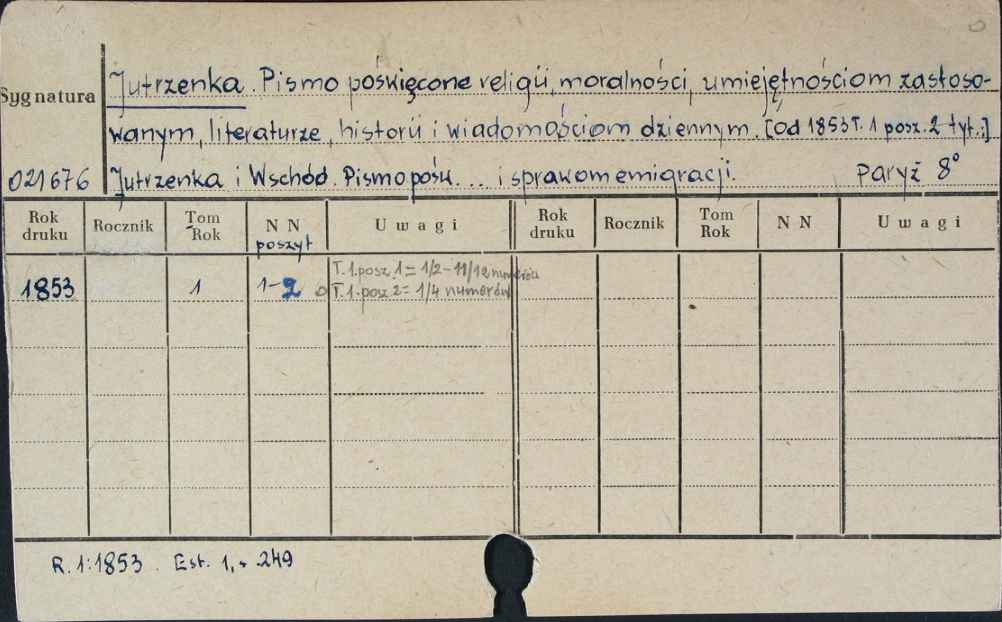 Jutrzenka. Pismo poświęcone religii, moralności, umiejętnościom zastoso-
Sygnatura
wanym, literaturze, historii i wiadomościom dziennym. [Od 1853 T. 1 posz. 2 tyt.:]
021676 Jutrzenka i Wschód. Pismo pośw. ... i sprawom emigracji. Paryż 8°
Rok druku Rocznik Tom Rok NN poszyt Uwagi Rok druku Rocznik Tom Rok NN Uwagi
T. 1. posz. 1 = 1/2 - 11/12 numerów
1853 1 1-2 T. 1. posz. 2 = 1/4 numerów
R. 1:1853. Est. 1, 249